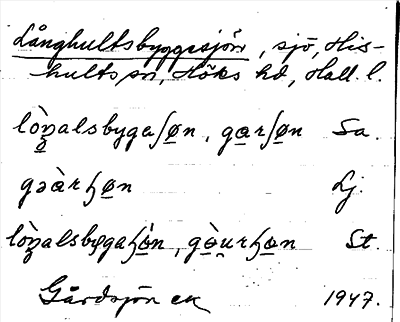 Långhultsbyggesjön, sjö, His-
hults sn, Höks hd, Hall. l.
lòŋalsbygeʃøn, gɑrʃøn Sa.
gəàrɧøn Lj.
lòŋalsbygaɧòn, gòurɧøn St.
Gårdsjön ek 1947.